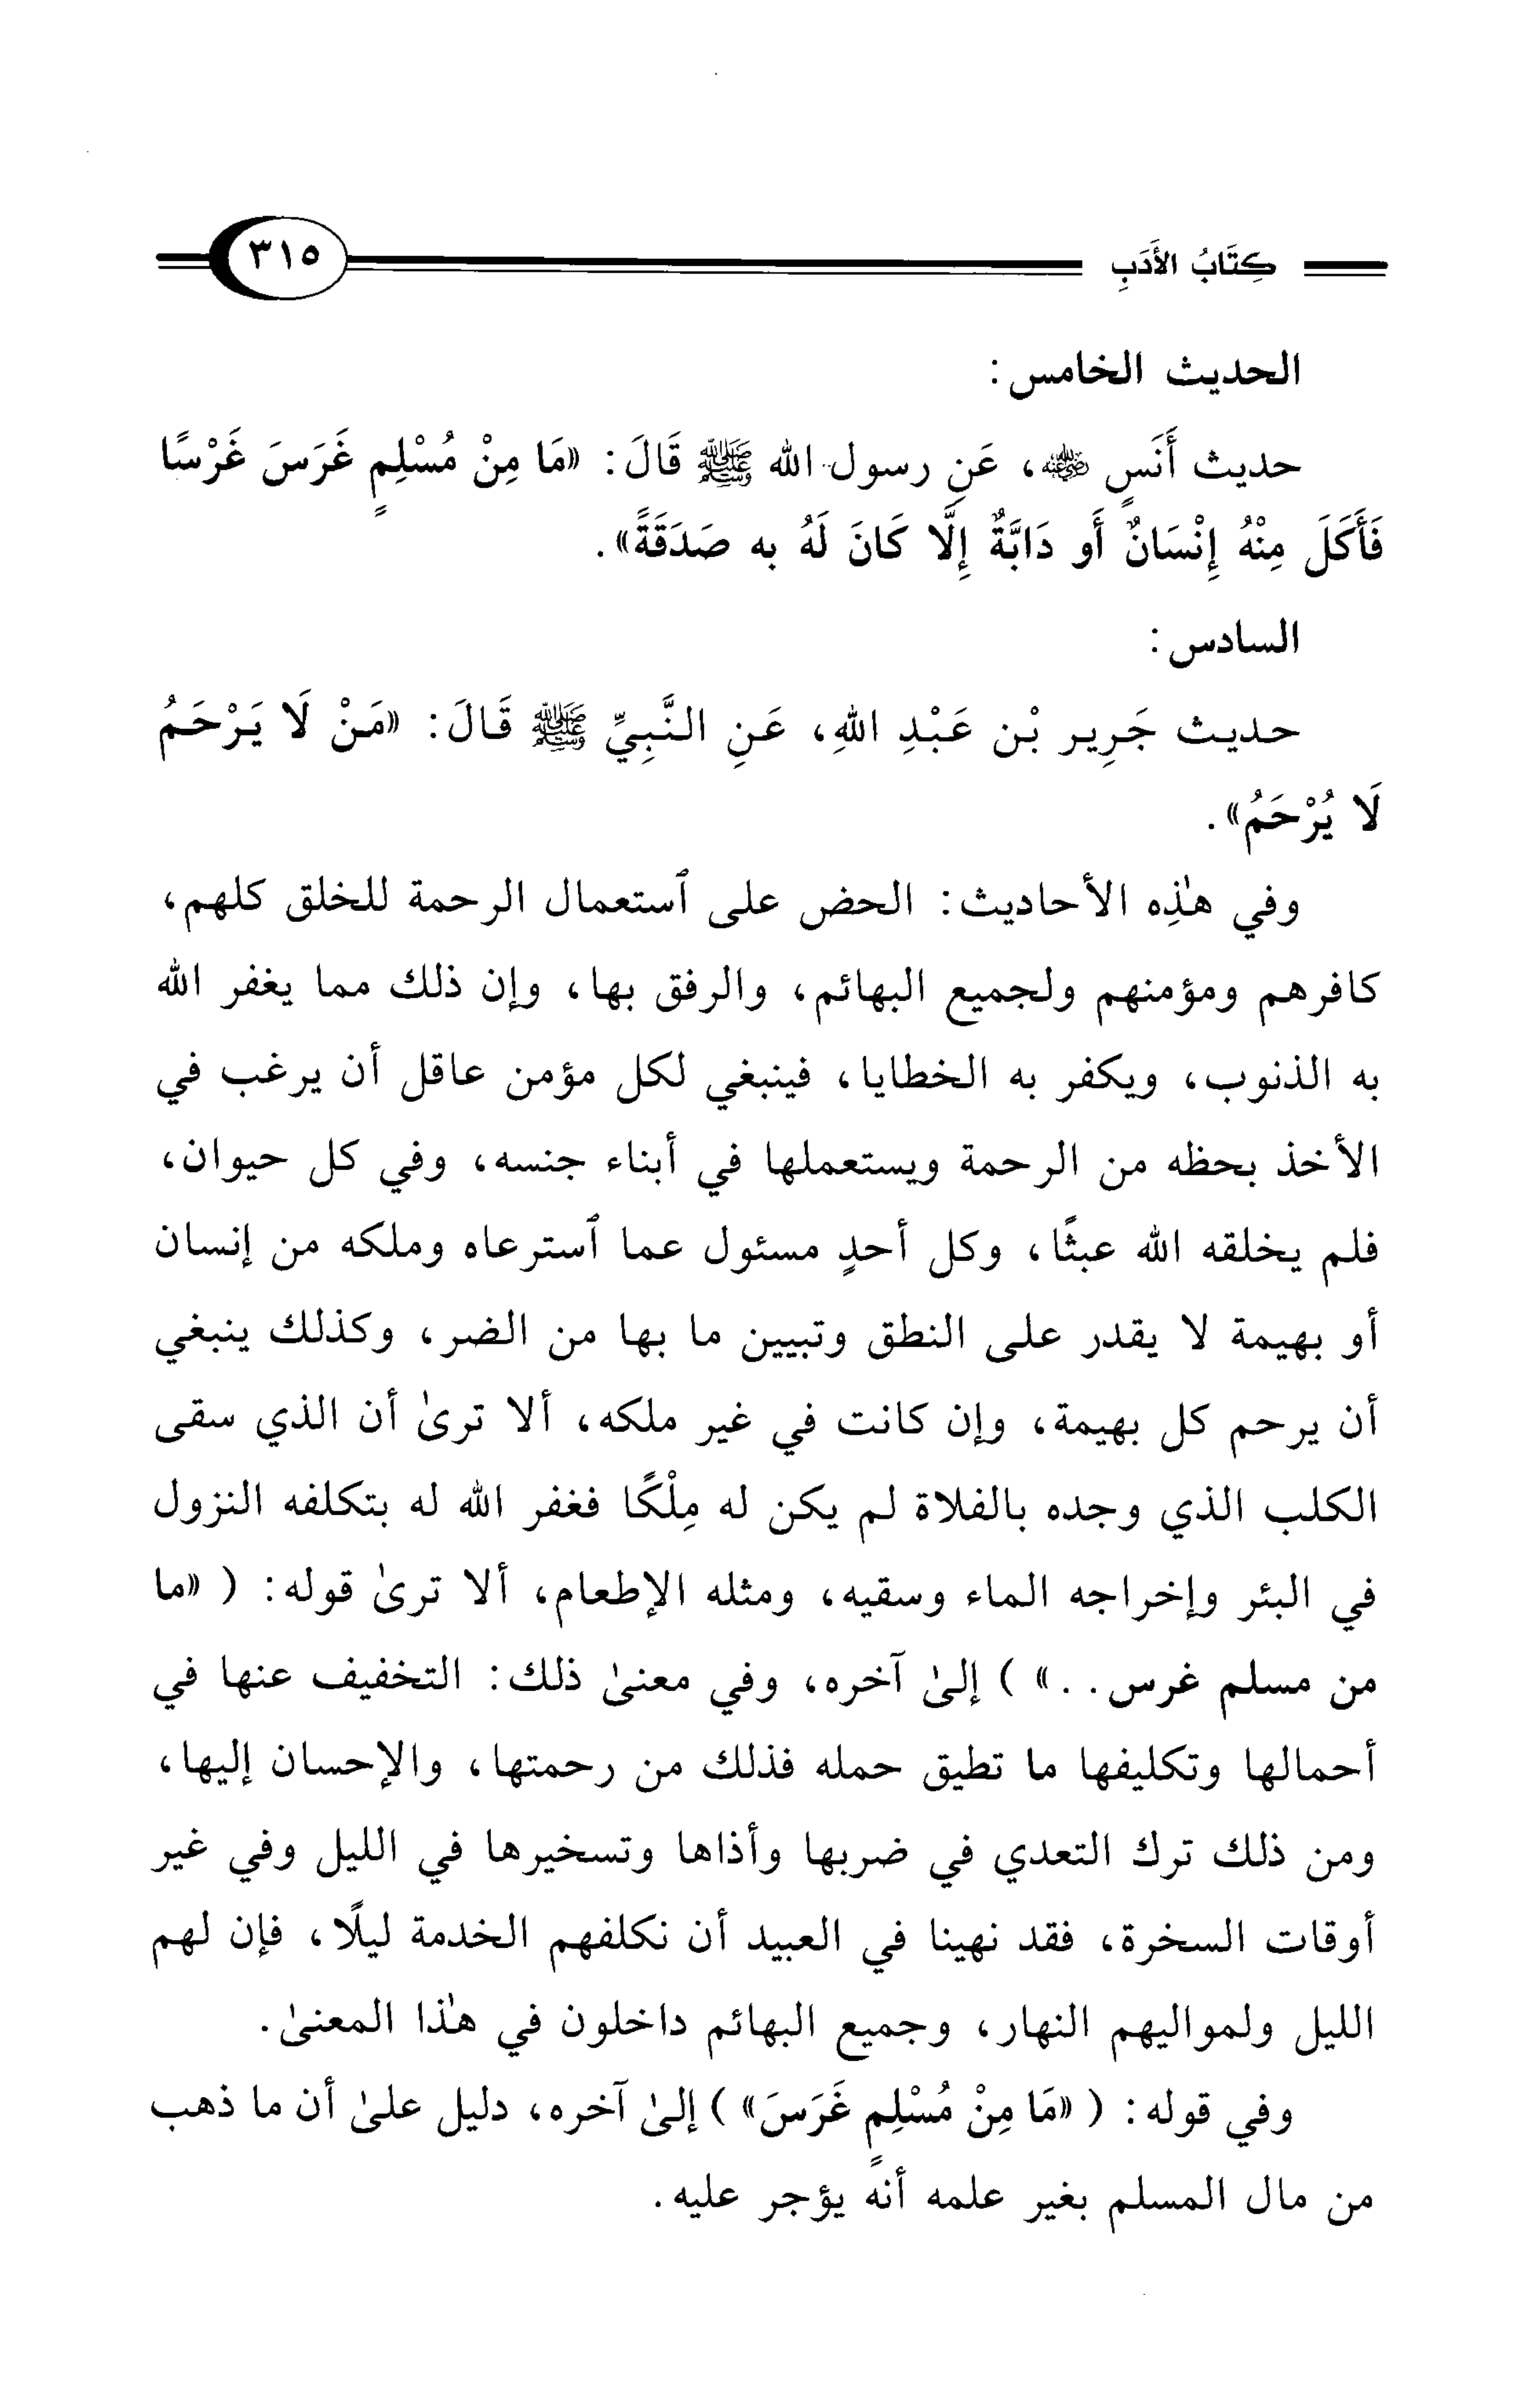 كِتَابُ الأَدَبِ ٣١٥
الحديث الخامس:
حديث أَنَسٍ رضي الله عنه، عَنِ رسول الله ﷺ قَالَ: «مَا مِنْ مُسْلِمٍ غَرَسَ غَرْسًا
فَأَكَلَ مِنْهُ إِنْسَانٌ أو دَابَّةٌ إِلَّا كَانَ لَهُ به صَدَقَةً».
السادس:
حديث جَرِير بْن عَبْدِ اللهِ، عَنِ النَّبِيِّ ﷺ قَالَ: «مَنْ لَا يَرْحَمُ
لَا يُرْحَمُ».
وفي هذِه الأحاديث: الحض على ٱستعمال الرحمة للخلق كلهم،
كافرهم ومؤمنهم ولجميع البهائم، والرفق بها، وإن ذلك مما يغفر الله
به الذنوب، ويكفر به الخطايا، فينبغي لكل مؤمن عاقل أن يرغب في
الأخذ بحظه من الرحمة ويستعملها في أبناء جنسه، وفي كل حيوان،
فلم يخلقه الله عبثًا، وكل أحدٍ مسئول عما ٱسترعاه وملكه من إنسان
أو بهيمة لا يقدر على النطق وتبيين ما بها من الضر، وكذلك ينبغي
أن يرحم كل بهيمة، وإن كانت في غير ملكه، ألا ترىٰ أن الذي سقى
الكلب الذي وجده بالفلاة لم يكن له مِلْكًا فغفر الله له بتكلفه النزول
في البئر وإخراجه الماء وسقيه، ومثله الإطعام، ألا ترىٰ قوله: ( «ما
من مسلم غرس. . » ) إلىٰ آخره، وفي معنىٰ ذلك: التخفيف عنها في
أحمالها وتكليفها ما تطيق حمله فذلك من رحمتها، والإحسان إليها،
ومن ذلك ترك التعدي في ضربها وأذاها وتسخيرها في الليل وفي غير
أوقات السخرة، فقد نهينا في العبيد أن نكلفهم الخدمة ليلًا، فإن لهم
الليل ولمواليهم النهار، وجميع البهائم داخلون في هذا المعنىٰ.
وفي قوله: ( «مَا مِنْ مُسْلِمٍ غَرَسَ» ) إلىٰ آخره، دليل علىٰ أن ما ذهب
من مال المسلم بغير علمه أنه يؤجر عليه.